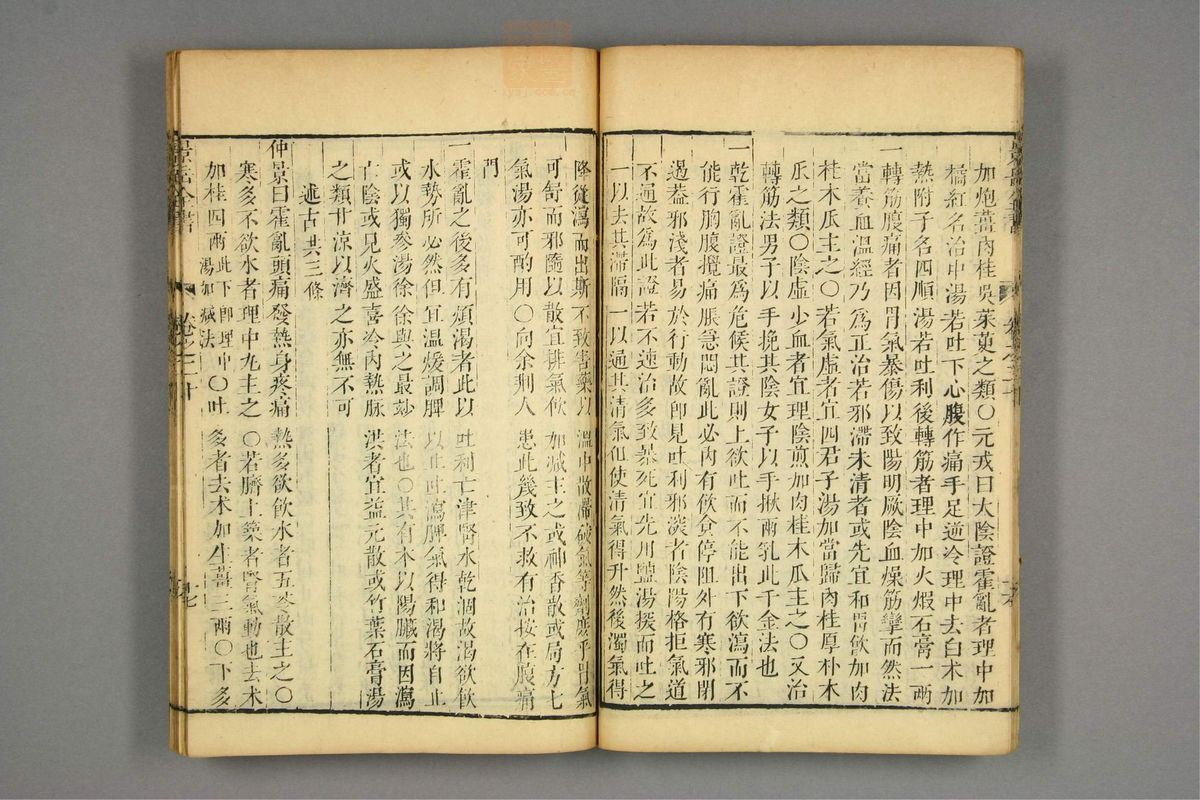 加炮薑肉桂吳茱萸之類〇元戎曰太陰證霍亂者理中加
橘紅名治中湯若吐下心腹作痛手足逆冷理中去白朮加
熟附子名四順湯若吐利後轉筋者理中加火煆石膏一兩
一轉筋腹痛者因胃氣暴傷以致陽明厥陰血燥筋攣而然法
當養血溫經乃為正治若邪滯未清者或先宜和胃飲加肉
桂木瓜主之〇若氣虛者宜四君子湯加當歸肉桂厚朴木
瓜之類〇陰虛少血者宜理陰煎加肉桂木瓜主之〇又治
轉筋法男子以手挽其陰女子以手揪兩乳此千金法也
一乾霍亂證最為危候其證則上欲吐而不能出下欲瀉而不
能行胸腹攪痛脹急悶亂此必內有飲食停阻外有寒邪閉
遏葢邪淺者易於行動故卽見吐利邪深者陰陽格拒氣道
不通故為此證若不速治多致暴死宜先用鹽湯探而吐之
一以去其滯隔一以通其清氣但使清氣得升然後濁氣得
降從瀉而出斯不致害藥以溫中散滯破氣等劑庶乎胃氣
可舒而邪隨以散宜排氣飲加減主之或神香散或局方七
氣湯亦可酌用〇向余荊人患此幾致不救有治按在腹痛
門
一霍亂之後多有煩渴者此以吐利亡津腎水乾涸故渴欲飲
水勢所必然但宜溫煖調脾以止吐瀉脾氣得和渴將自止
或以獨參湯徐徐與之最玅法也〇其有本以陽臟而因瀉
亡陰或見火盛喜冷內熱脉洪者宜益元散或竹葉石膏湯
之類甘涼以濟之亦無不可
述古共三條
仲景曰霍亂頭痛發熱身疼痛熱多欲飲水者五苓散主之〇
寒多不欲水者理中丸主之〇若臍上築者腎氣動也去朮
加桂四兩此下卽理中湯加減法〇吐多者去朮加生薑三兩〇下多
景岳全書
卷之二十